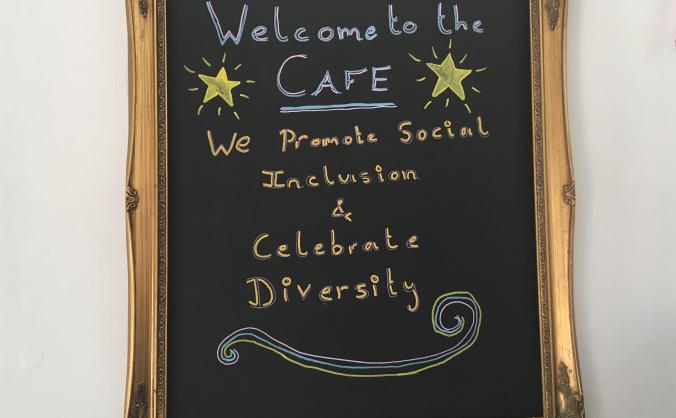 Welcome to the
CAFE
We Promote Social
Inclusion
&
Celebrate
Diversity